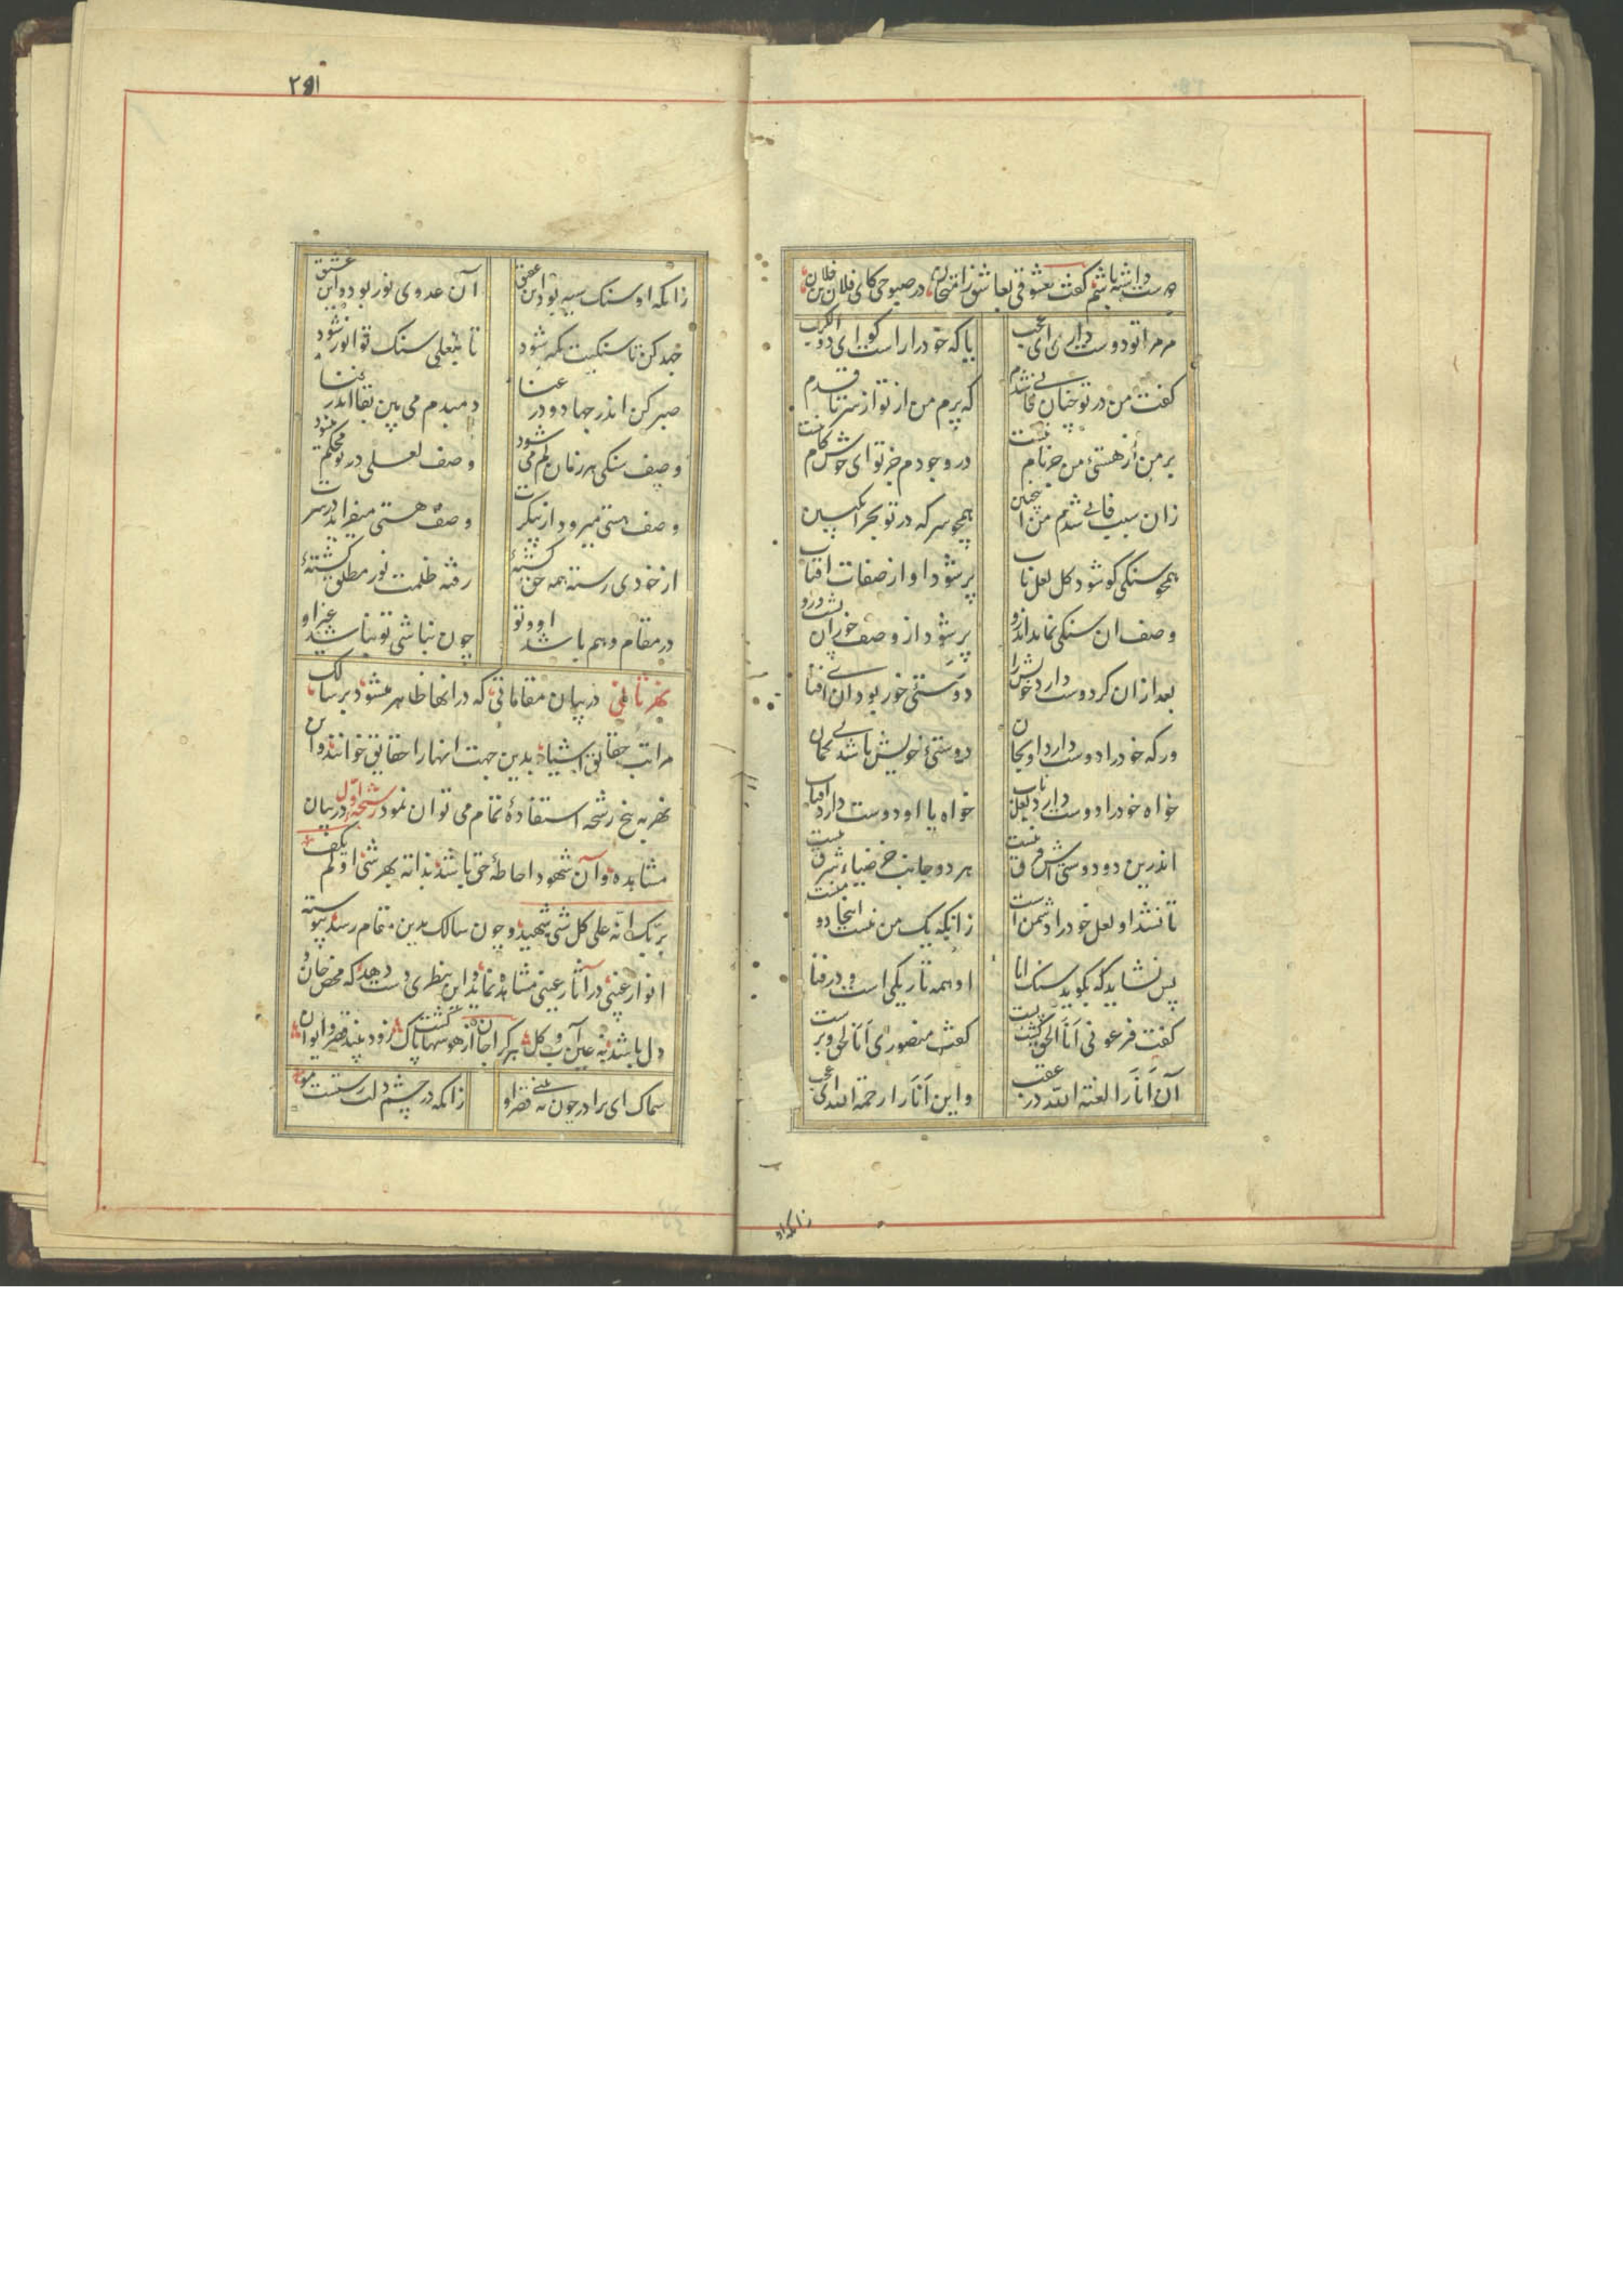 دوست داشته باشم گفت معشوقی بعاشق زامتحان در صبوحی کای فلان بن فلان
مر مرا تو دوست داری ای عجب یا که خود را راست گو ای ذو الکرب
گفت من در تو چنان فانی شدم که پرم من از تو از سر تا قدم
بر من از هستی من جز نام نیست در وجودم جز تو ای خوش کام نیست
زان سبب فانی شدم من اینچنین همچو سرکه در تو بحر انگبین
همچو سنگی کو شود کل لعل ناب پر شود او از صفات افتاب
وصف ان سنگی نماند اندرو پر شود از وصف خور ان پشت و رو
بعد ازان گر دوست دارد خویش را دوستی خور بود ان ای فتا
ور که خود را دوست دارد او بجان دوستی خویش باشد بی گمان
خواه خود را دوست دارد لعل ناب خواه یا او دوست دارد افتاب
اندرین دو دوستی خود فرق نیست هر دو جانب جز ضیاء شرق نیست
تا نشد او لعل خود را دشمن است زانکه یک من نیست اینجا دو منست
پس نشاید که بگوید سنگ انا او همه تاریکی است و در فنا
گفت فرعونی اَنَا الحق گشت پست گفت منصوری اَنَا الحق و برست
آن اَنَا را لعنة الله در عقب و این اَنَا را رحمة الله ای عجب
زانکه او
۲۹۱
زانکه او سنگ سیه بود این عقیق آن عدوی نور بود و این عشیق
جهد کن تا سنگیت کمتر شود تا بلعلی سنگ تو انور شود
صبر کن اندر جهاد و در عنا دمبدم می بین بقا اندر فنا
وصف سنگی هر زمان کم می شود وصف لعلی در تو محکم میشود
وصف هستی میرود از پیکرت وصف هستی میفزاید در سرت
از خودی رسته همه حق گشتهٔ رفته ظلمت نور مطلق گشتهٔ
در مقام وهم باشد او و تو چون نباشی تو نباشد غیر او
نهر ثانی در بیان مقاماتی که در انها ظاهر میشود بر سالک
مراتب حقایق اشیا و بدین جهت انها را حقایق خوانند و از این
نهر به پنج رشحه استفادهٔ تمام می توان نمود رشحه اول در بیان
مشاهده و آن شهود احاطهٔ حق باشد بذاته بهر شئی اولم یکف
بربک انه علی کل شئ شهید و چون سالک بدین مقام رسد پیوسته
انوار غیبی در آثار عینی مشاهده نماید و این نظری دست دهد که محض جان و
دل باشد نه عین آب و گل هر کرا جان از هوسها پاک گشت زود بیند قصر و ایوان
سماک ای برادر چون ببینی قصر او زانکه در چشم دلت رستست مو